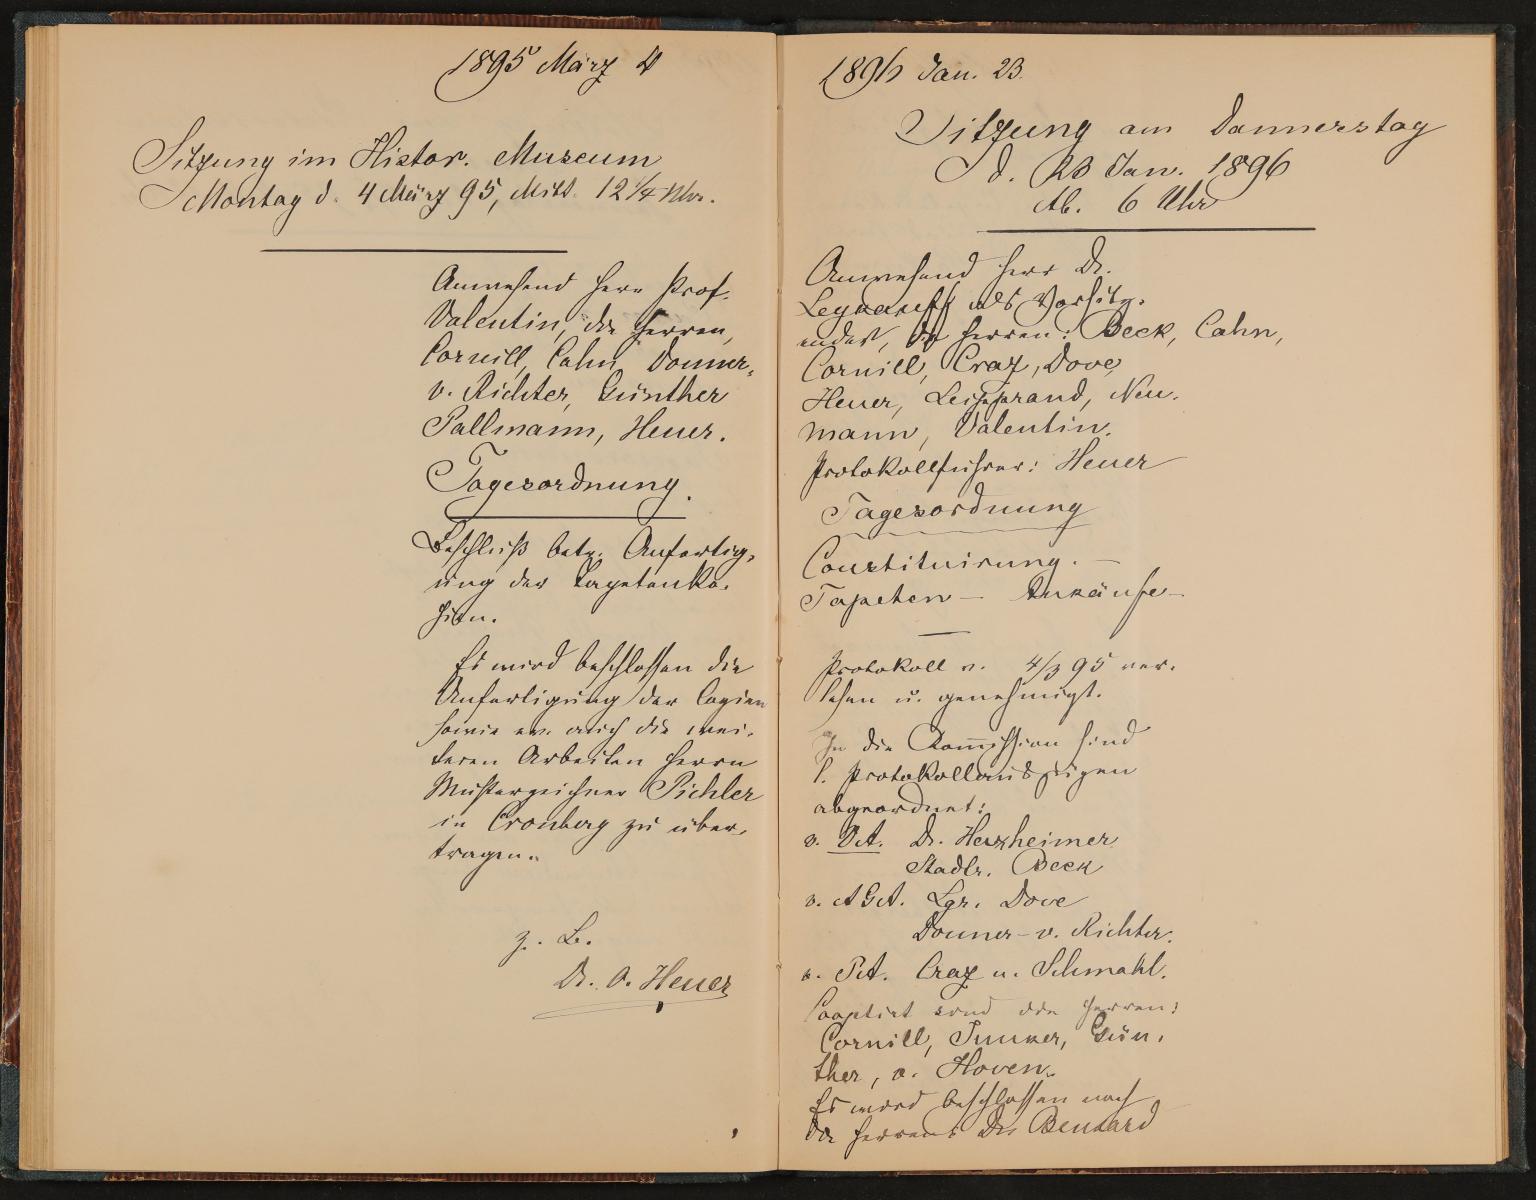 1895 März 4
Sitzung im Histor. Museum
Montag d. 4 März 95, Mitt. 12 1/4 Uhr.
Anwesend Herr Prof.
Valentin, die Herren,
Cornill, Cahn, Donner-
v. Richter, Günther
Pallmann, Heuer.
Tagesordnung.
Beschluß betr. Anfertig-
ung der Tapetenko-
pien.
Es wird beschlossen die
Anfertigung der Copien
sowie ev. auch die wei-
teren Arbeiten Herrn
Musterzeichner Pichler
in Cronberg zu über-
tragen.
z. B.
Dr. O. Heuer
1896 Jan. 23.
Sitzung am Donnerstag
d. 23 Jan. 1896
Ab. 6 Uhr
Anwesend Herr Dr.
als Vorsitz-
ender, die Herren: Beck, Cahn,
Cornill, Craz, Dove,
Heuer, Leipprand, Neu-
mann, Valentin.
Protokollführer: Heuer
Tagesordnung
Constituirung. —
Tapeten — Ankäufe —
Protokoll v. 4/3 95 ver-
lesen u. genehmigt.
In die Kommission sind
l. Protokollauszügen
abgeordnet:
v. VA. Dr. Herxheimer
Stadtr. Beck
v. AGA. Lgr. Dove
Donner-v. Richter.
v. PA. Craz u. Schmahl.
Cooptirt sind die Herren:
Cornill, Junker, Gün-
ther, v. Hoven.
Es wird beschlossen noch
die Herren: Dr. Benkard